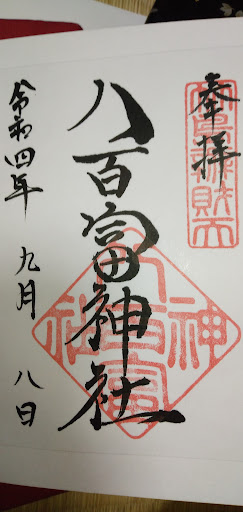 奉拝
八百富神社
令和四年 九月 八日
八百富神社